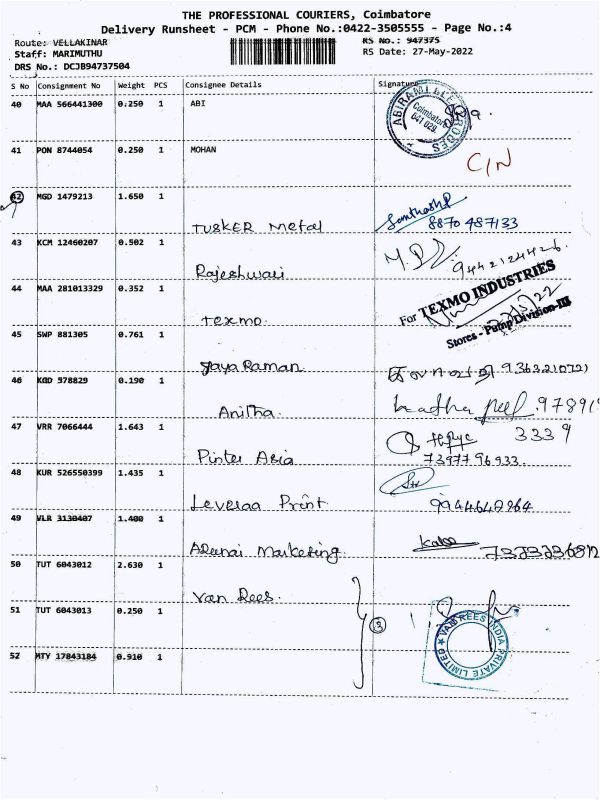 THE PROFESSIONAL COURIERS, Coimbatore
Delivery Runsheet - PCM - Phone No.:0422-3505555 - Page No.:4
Route: VELLAKINAR
RS No.: 947375
Staff: MARIMUTHU
RS Date: 27-May-2022
DRS No.: DCJB94737504
S No Consignment No Weight PCS Consignee Details Signature
40 MAA 566441300 0.250 1 ABI
ABIRAMI ELECTRODES Coimbatore 641 029.
41 PON 8744054 0.250 1 MOHAN
C/N
42 MGD 1479213 1.650 1
TUSKER Metal
8870 487133
43 KCM 12460207 0.502 1
Rajeshwari
9442124426.
44 MAA 281013329 0.352 1
Texmo.
For TEXMO INDUSTRIES
Stores - Pump Division-III
45 SWP 881305 0.761 1
Jaya Raman
46 KGD 578829 0.190 1
Anitha.
Radha
3339
47 VRR 7066444 1.643 1
Pinter Asia
73977 96933.
48 KUR 526550399 1.435 1
Leveraa Print
9944640964
49 VLR 3130407 1.400 1
Arunai Marketing
50 TUT 6043012 2.630 1
Van Rees.
51 TUT 6043013 0.250 1
3
VAN REES INDIA PRIVATE LIMITED
52 MTY 17843184 0.910 1